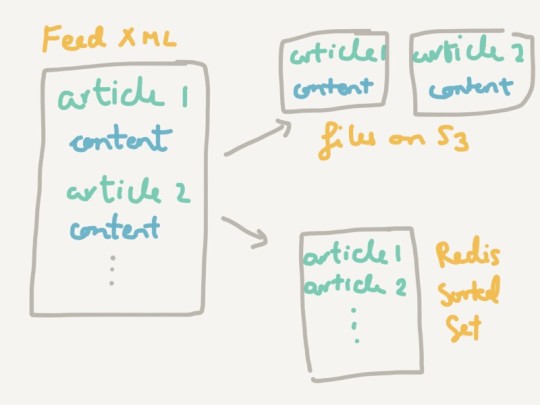 Feed XML
article 1
content
article 2
content
article 1
content
article 2
content
files on S3
article 1
article 2
Redis
Sorted
Set